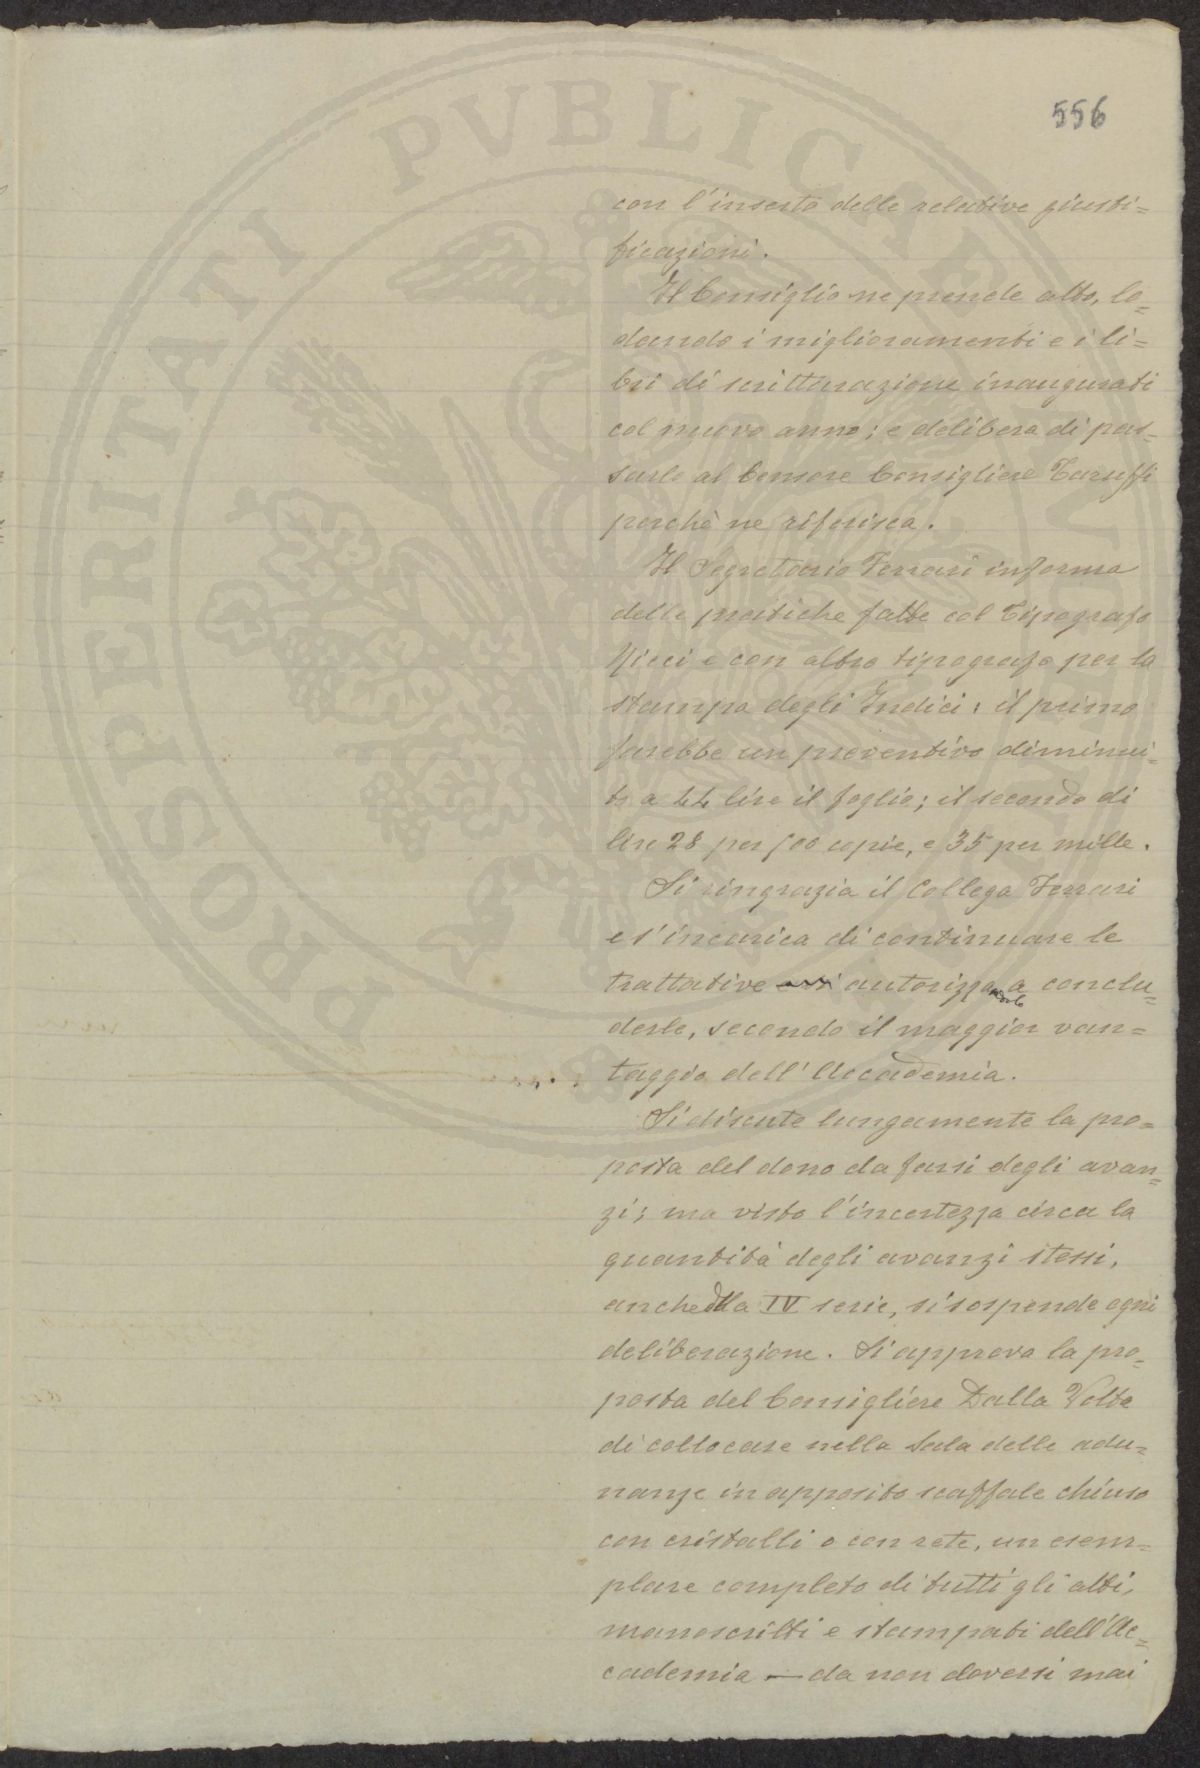 556
con l'inserto delle relative giusti=
ficazioni.
Il Consiglio ne prende atto, lo=
dando i miglioramenti e i li=
bri di scritturazione inaugurati
col nuovo anno; e delibera di pas=
sarlo al Censore Consigliere Taruffi
perchè ne riferisca.
Il Segretario Ferrari informa
delle pratiche fatte col Tipografo
e con altro tipografo per la
stampa degli Indici: il primo
farebbe un preventivo diminui=
to a 44 lire il foglio; il secondo di
lire 28 per 500 copie, e 35 per mille.
Si ringrazia il Collega Ferrari
e s'incarica di continuare le
trattative autorizzandolo a conclu=
derle, secondo il maggior van=
taggio dell'Accademia.
Si discute lungamente la pro=
posta del dono da farsi degli avan=
zi; ma visto l'incertezza circa la
quantità degli avanzi stessi,
anche della IV serie, si sospende ogni
deliberazione. Si approva la pro=
posta del Consigliere Dalla Volta
di collocare nella Sala delle adu=
nanze in apposito scaffale chiuso
con cristalli o con rete, un esem=
plare completo di tutti gli atti,
manoscritti e stampati dell'Ac=
cademia — da non doversi mai
PROSPERITATI PVBLICAE AVGENDAE